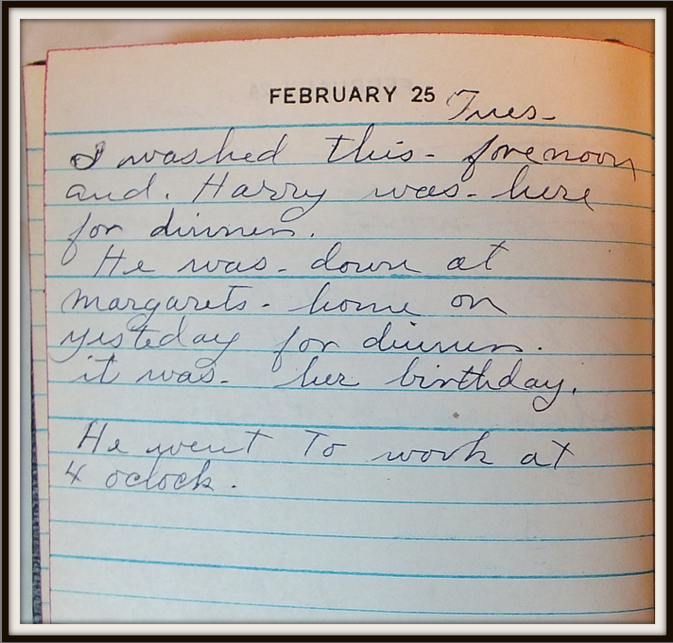 FEBRUARY 25 Tues-
I washed this- forenoon
and. Harry was- here
for dinner.
He was- down at
margarets- home on
yesteday for dinner.
it was- her birthday.
He went To work at
4 oclock.